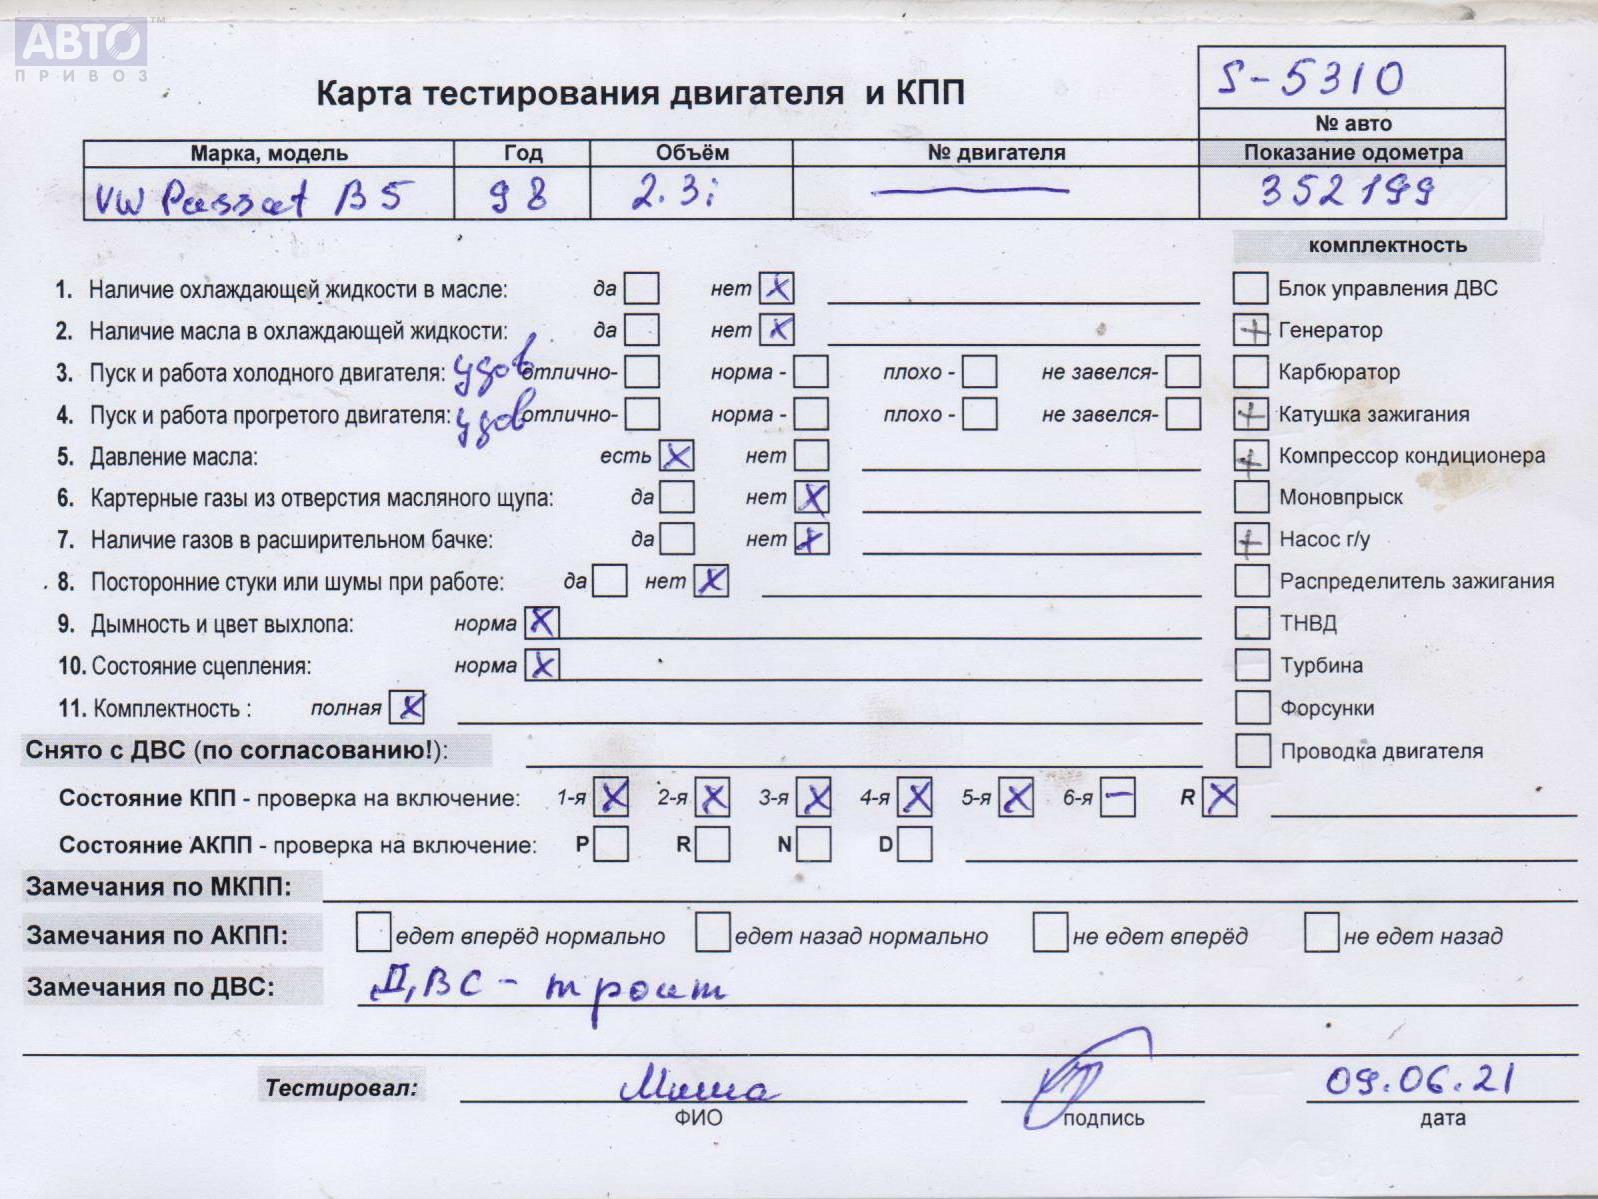 АВТО™
ПРИВОЗ
S-5310
Карта тестирования двигателя и КПП
№ авто
Марка, модель Год Объём № двигателя Показание одометра
VW Passat B5 98 2.3i — 352199
комплектность
1. Наличие охлаждающей жидкости в масле: да нет X Блок управления ДВС
2. Наличие масла в охлаждающей жидкости: да нет X + Генератор
3. Пуск и работа холодного двигателя: удов отлично- норма - плохо - не завелся- Карбюратор
4. Пуск и работа прогретого двигателя: удов отлично- норма - плохо - не завелся- + Катушка зажигания
5. Давление масла: есть X нет + Компрессор кондиционера
6. Картерные газы из отверстия масляного щупа: да нет X Моновпрыск
7. Наличие газов в расширительном бачке: да нет X + Насос г/у
8. Посторонние стуки или шумы при работе: да нет X Распределитель зажигания
9. Дымность и цвет выхлопа: норма X ТНВД
10. Состояние сцепления: норма X Турбина
11. Комплектность : полная X Форсунки
Снято с ДВС (по согласованию!): Проводка двигателя
Состояние КПП - проверка на включение: 1-я X 2-я X 3-я X 4-я X 5-я X 6-я — R X
Состояние АКПП - проверка на включение: P R N D
Замечания по МКПП:
Замечания по АКПП: едет вперёд нормально едет назад нормально не едет вперёд не едет назад
Замечания по ДВС: ДВС - троит
Тестировал: Миша 09.06.21
ФИО подпись дата